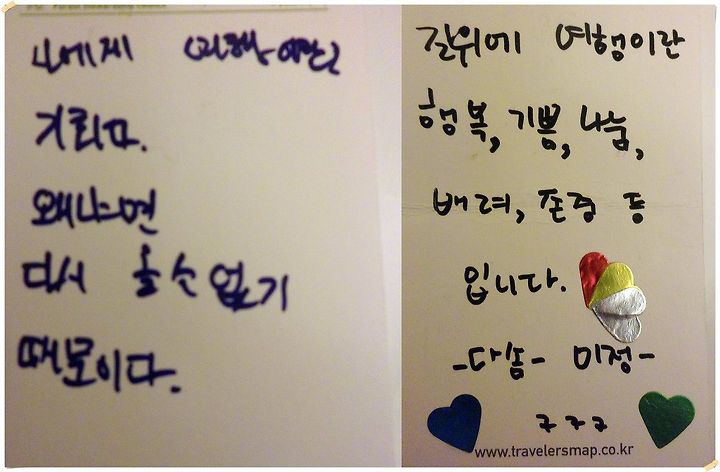 나에게 여행이란?
기회다.
왜냐하면
다시 올 수 없기
때문이다.
길위에 여행이란
행복, 기쁨, 나눔,
배려, 존중 등
입니다.
-다솜- 미정-
ㅋㅋㅋ
www.travelersmap.co.kr